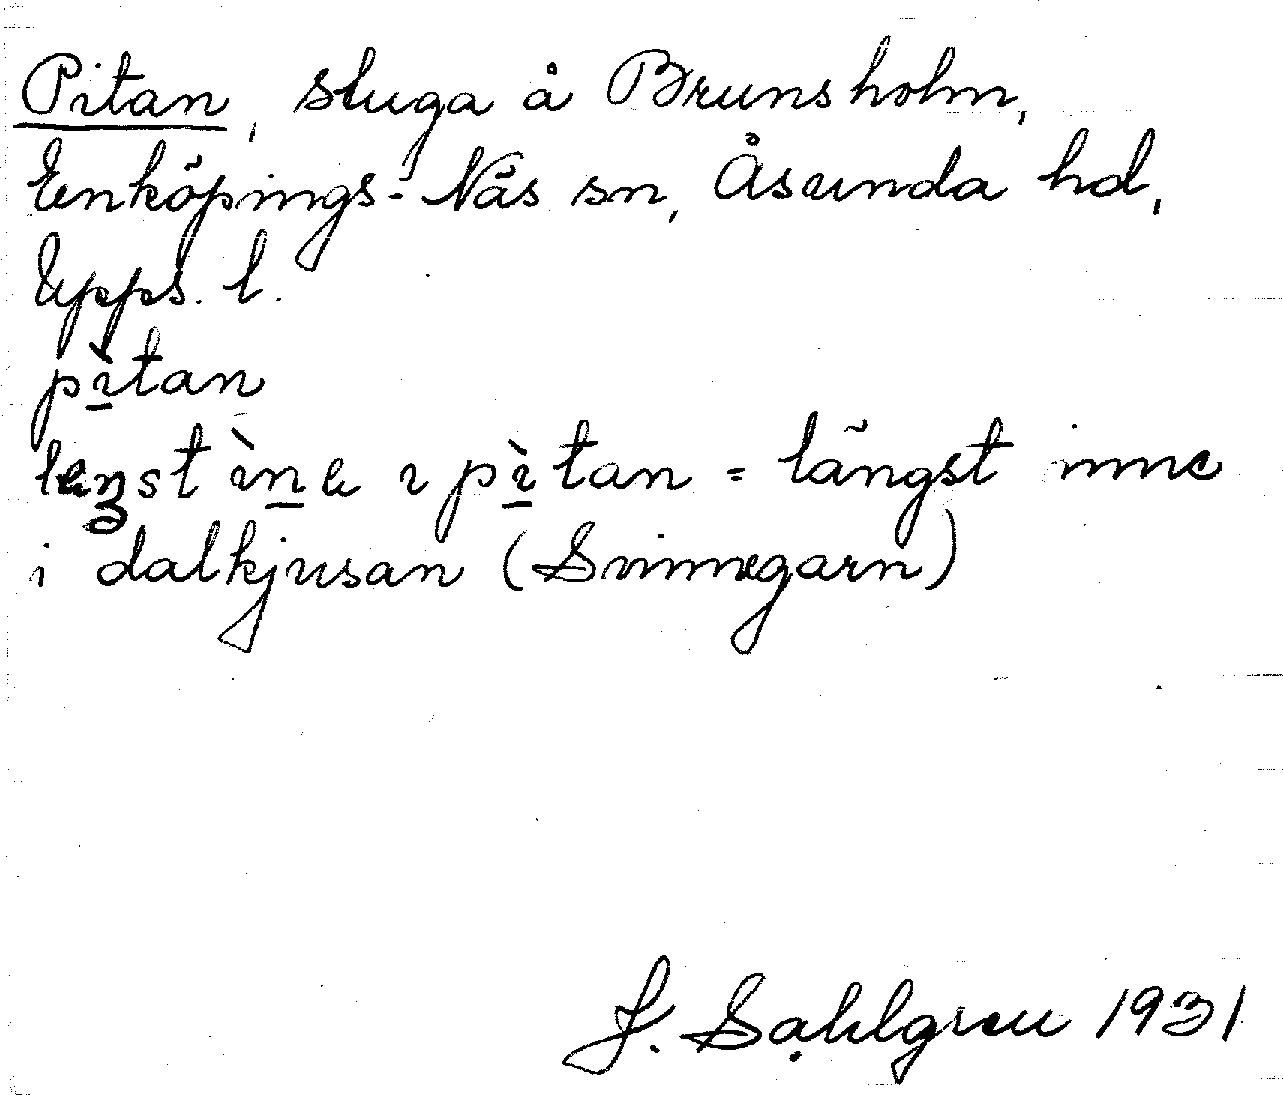 Pitan, stuga å Brunsholm,
Enköpings-Näs sn, Åsunda hd,
Upps. l.
pı̀tan
leŋst ı̀ne ı pı̀tan = längst inne
i dalkjusan (Svinnegarn)
J. Sahlgren 1931